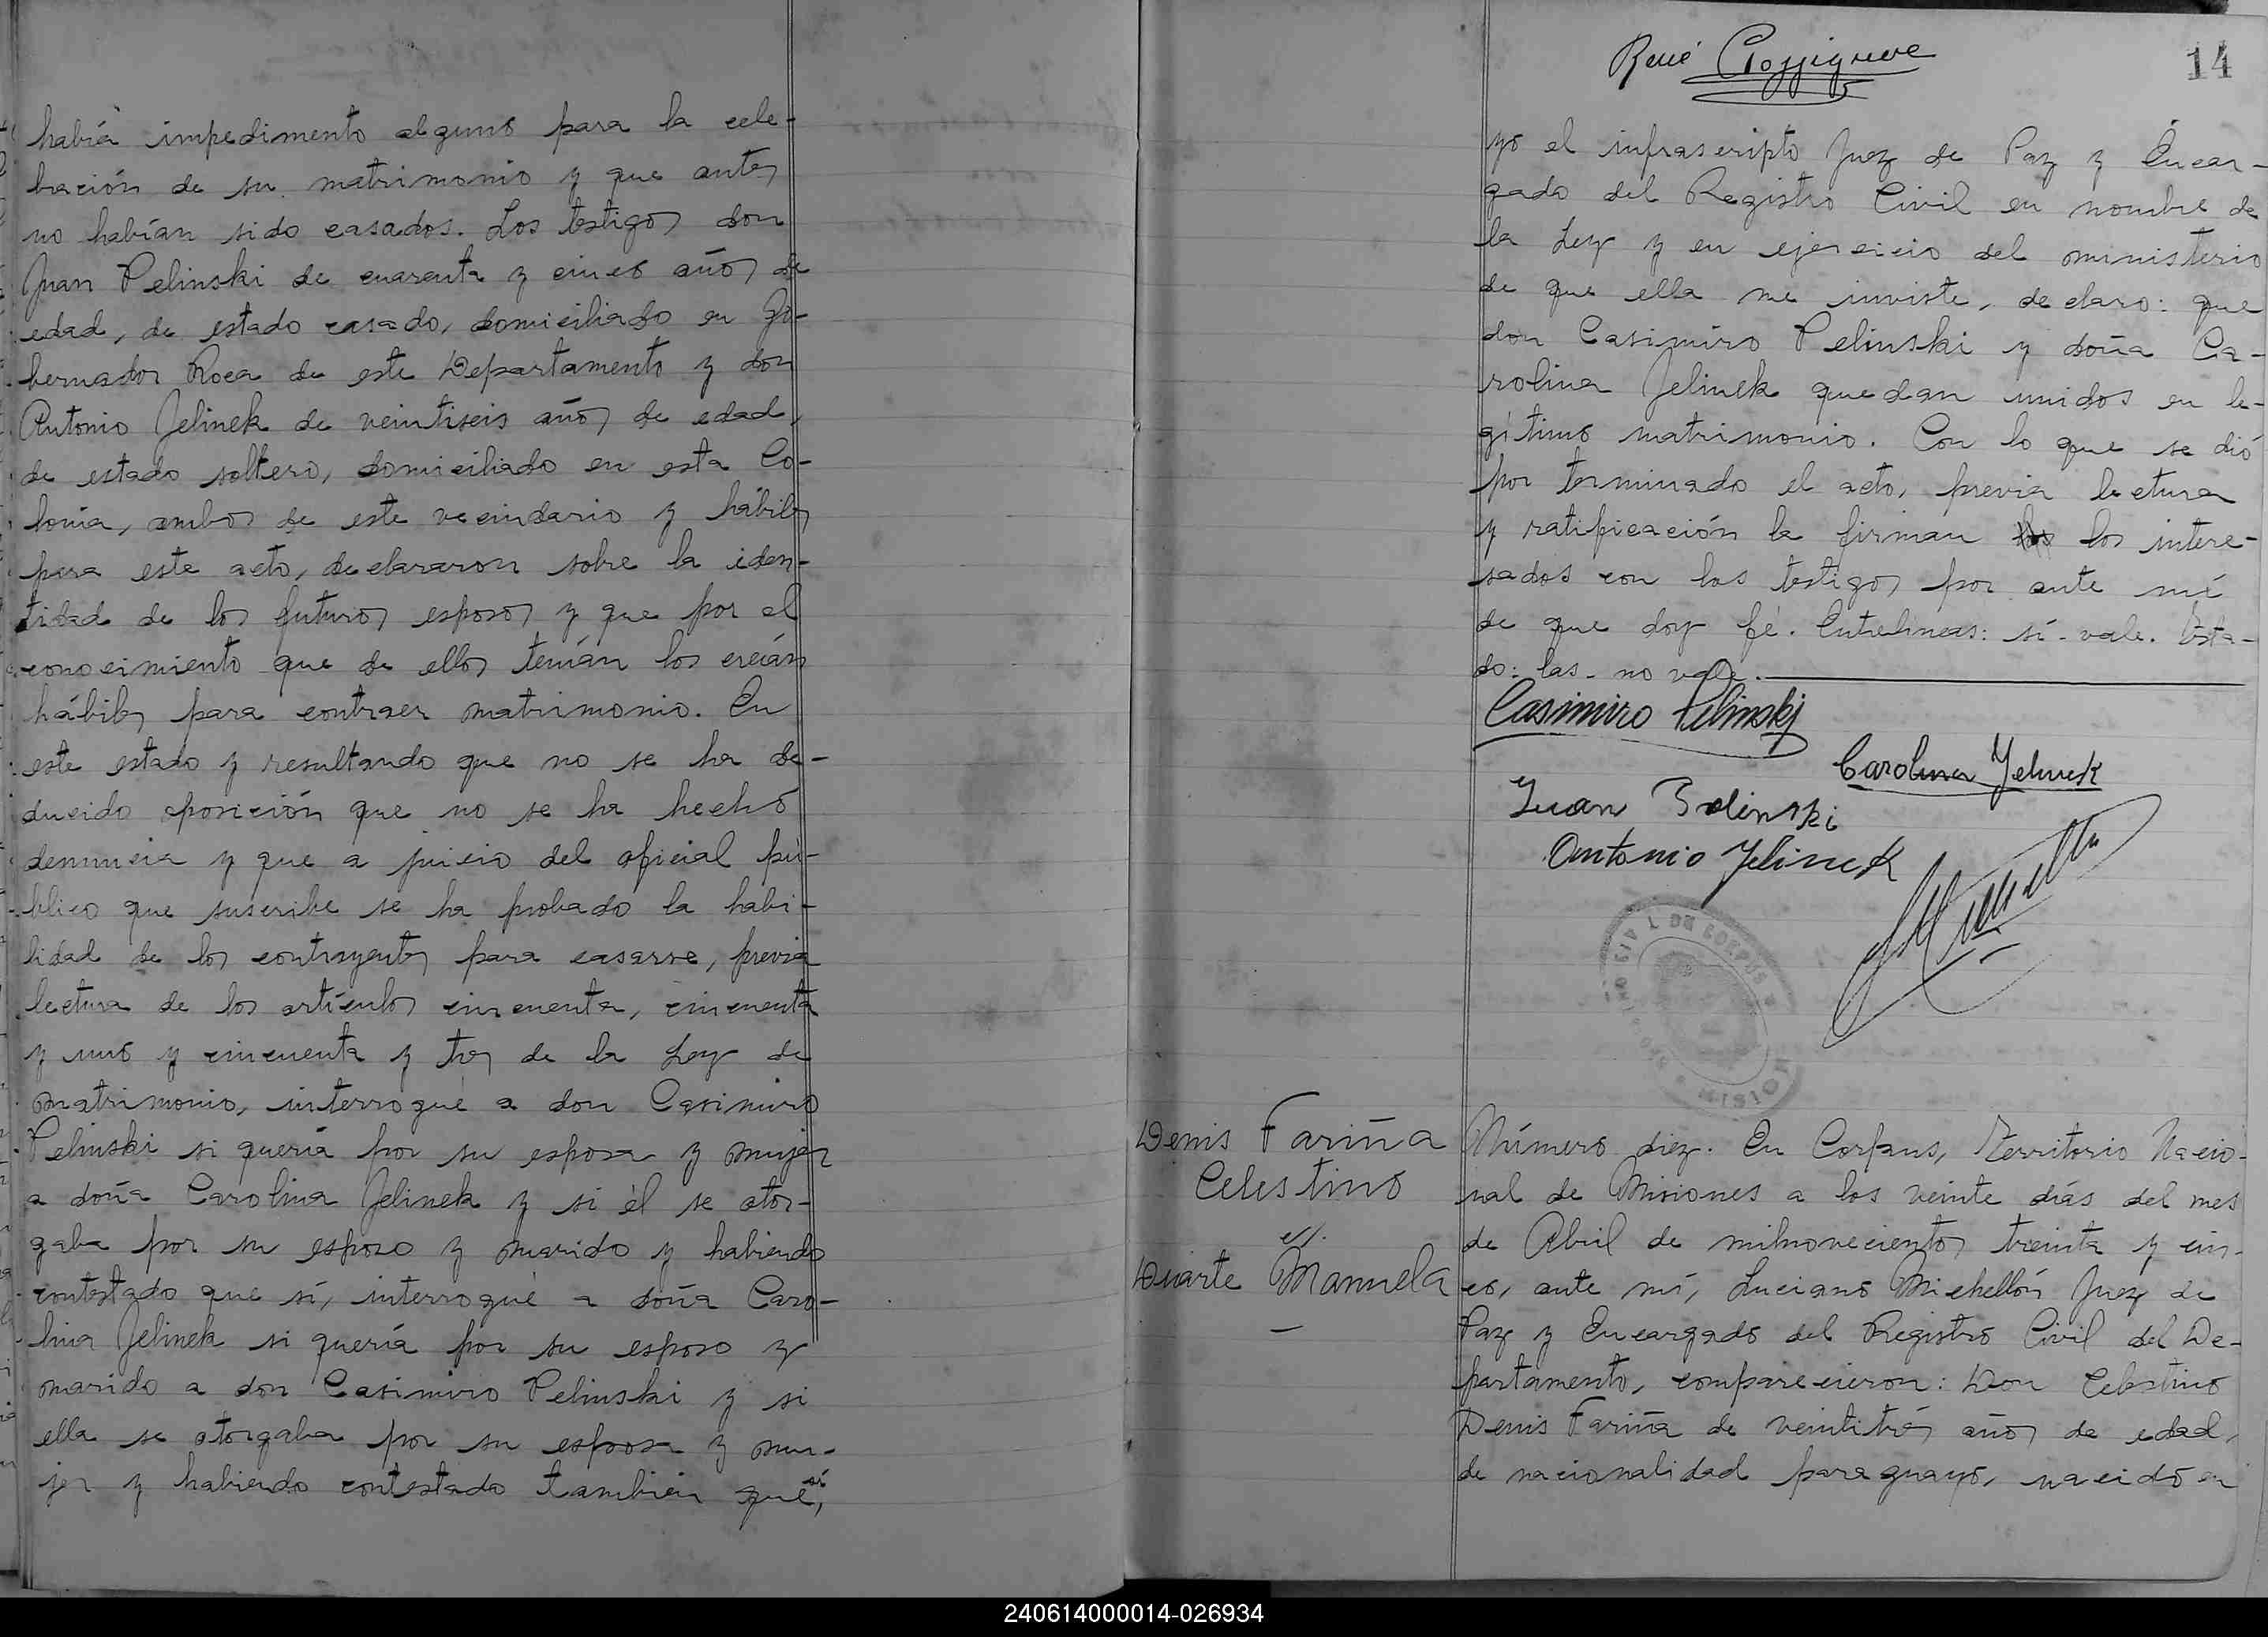 había impedimento alguno para la cele-
bración de su matrimonio y que antes
no habían sido casados. Los testigos don
Juan Pelinski de cuarenta y cinco años de
edad, de estado casado, domiciliado en Go-
bernador Roca de este Departamento y don
Antonio Jelinek de veintiseis años de edad,
de estado soltero, domiciliado en esta Co-
lonia, ambos de este vecindario y hábiles
para este acto, declararon sobre la iden-
tidad de los futuros esposos y que por el
conocimiento que de ellos tenían los creían
hábiles para contraer matrimonio. En
este estado y resultando que no se ha de-
ducido oposición que no se ha hecho
denuncia y que a juicio del oficial pú-
blico que suscribe se ha probado la habi-
lidad de los contrayentes para casarse, previa
lectura de los artículos cincuenta, cincuenta
y uno y cincuenta y tres de la Ley de
matrimonio, interrogué a don Casimiro
Pelinski si quería por su esposa y mujer
a doña Carolina Jelinek y si él se otor-
gaba por su esposo y marido y habiendo
contestado que sí, interrogué a doña Caro-
lina Jelinek si quería por su esposo y
marido a don Casimiro Pelinski y si
ella se otorgaba por su esposa y mu-
jer y habiendo contestado tambien que sí,
René
14
yo el infrascripto Juez de Paz y Encar-
gado del Registro Civil en nombre de
la Ley y en ejercicio del ministerio
de que ella me inviste, declaro: que
don Casimiro Pelinski y doña Ca-
rolina Jelinek quedan unidos en le-
gítimo matrimonio. Con lo que se dió
por terminado el acto, previa lectura
y ratificación la firman las los intere-
sados con los testigos por ante mí
de que doy fé. Entrelineas: sí - vale. Testa-
do: las - no vale.
Casimiro Pelinski
Carolina Jelinek
Juan Pelinski
Antonio Jelinek
Denis Fariña
Celestino
c/.
Duarte Manuela
Número diez. En Corpus, Territorio Nacio-
nal de Misiones a los veinte días del mes
de Abril de milnovecientos treinta y cin-
co, ante mí, Luciano Michellón Juez de
Paz y Encargado del Registro Civil del De-
partamento, comparecieron: Don Celestino
Denis Fariña de veintitrés años de edad,
de nacionalidad paraguayo, nacido en
240614000014-026934